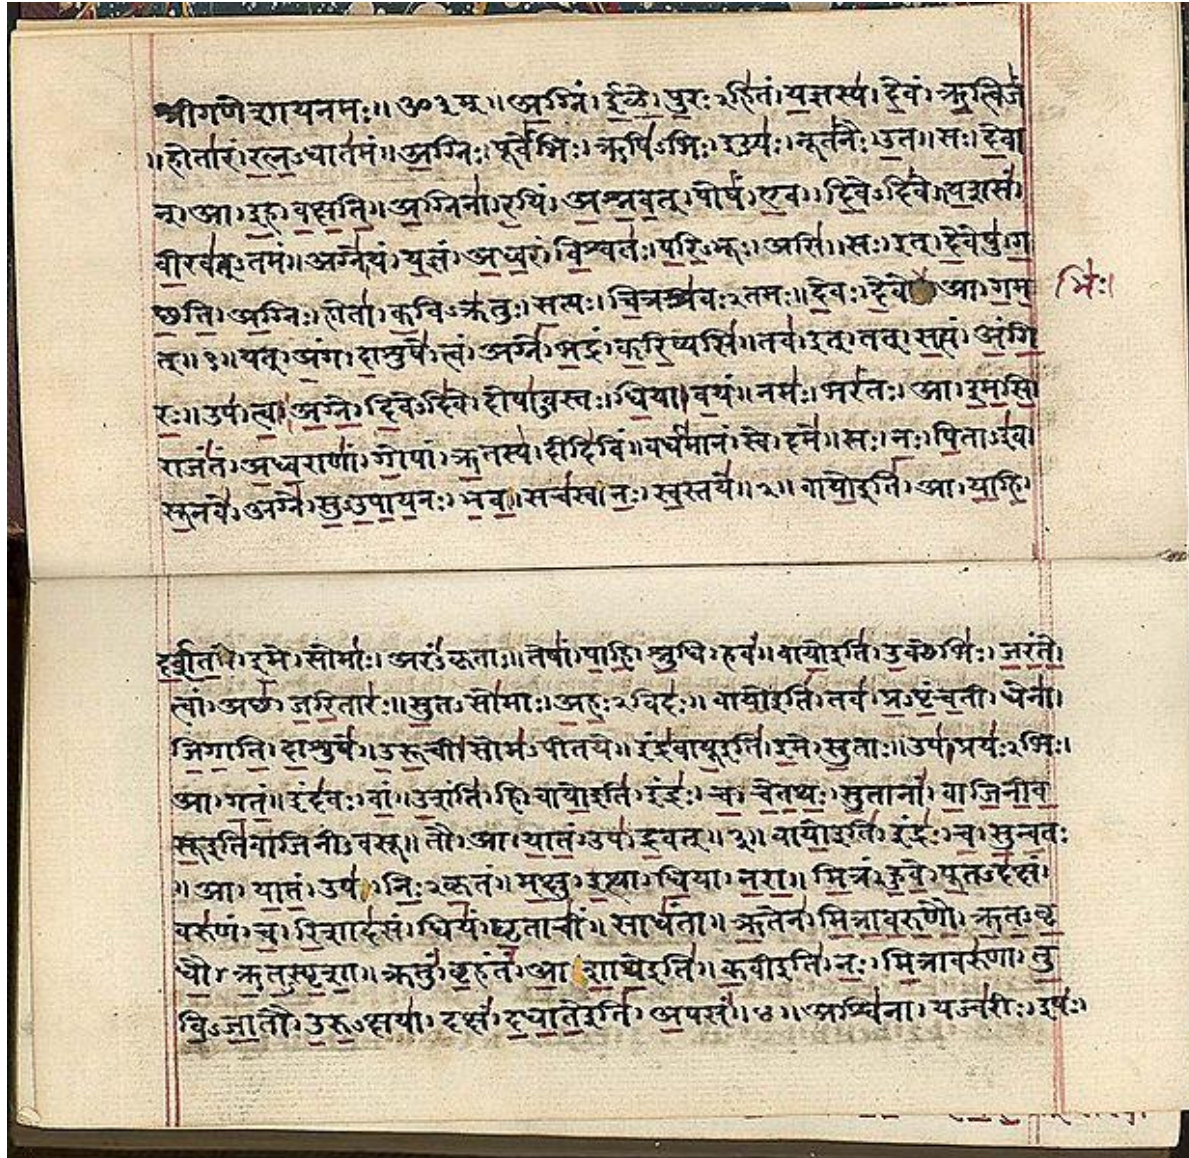 श्रीगणेशायनमः॥ॐ३म्॥अ॒ग्निं।ई॒ळे॒।पु॒रःऽहि॑तं।य॒ज्ञस्य॑।दे॒वं।ऋ॒त्विजं॑
॥होता॑रं।र॒त्न॒ऽधात॑मं॥अ॒ग्निः।पूर्वे॑भिः।ऋषि॑ऽभिः।ईड्यः॑।नूत॑नैः।उ॒त॥सः।दे॒वा
न्।आ।इ॒ह।व॒क्ष॒ति॒॥अ॒ग्निना॑।र॒यिं।अ॒श्न॒व॒त्।पोषं॑।ए॒व।दि॒वेऽदि॑वे॥य॒शसं॑
वी॒रव॑त्ऽतमं॥अग्ने॑।यं।य॒ज्ञं।अ॒ध्व॒रं।वि॒श्वतः॑।प॒रि॒ऽभूः।असि॑॥सः।इत्।दे॒वेषु॑।ग
च्छ॒ति॒।अ॒ग्निः।होता॑।क॒विऽक्र॑तुः।स॒त्यः।चि॒त्रश्र॑वःऽतमः॥दे॒वः।दे॒वे आ।ग॒म॒
भिः।
त्॥१॥यत्।अं॒ग।दा॒शुषे॑।त्वं।अग्ने॑।भ॒द्रं।क॒रि॒ष्यसि॑॥तव॑।इत्।तत्।स॒त्यं।अं॒गि॒
रः॒॥उप॑।त्वा॒।अ॒ग्ने॒।दि॒वेऽदि॑वे।दोषा॑ऽवस्तः।धि॒या।व॒यं॥नमः॑।भरं॑तः।आ।इ॒म॒सि॒
राजं॑तं।अ॒ध्व॒राणां॑।गो॒पां।ऋ॒तस्य॑।दीदि॑विं॥वर्ध॑मानं।स्वे।दमे॑॥सः।नः॒।पि॒ताऽइ॑व।
सू॒नवे॑।अग्ने॑।सु॒ऽउ॒पा॒य॒नः।भ॒व॒॥सच॑स्व।नः॒।स्व॒स्तये॑॥२॥वायो॒इति॑।आ।या॒हि॒।
द॒र्श॒त॒।इ॒मे।सोमाः॑।अरं॑ऽकृताः॥तेषां॑।पा॒हि॒।श्रु॒धि।हवं॑॥वायो॒इति॑।उ॒क्थेभिः॑।ज॒रं॒ते॒
त्वां।अच्छ॑।ज॒रि॒तारः॑॥सु॒तऽसो॑माः।अ॒हः॒ऽविदः॑॥वायो॒इति॑।तव॑।प्र॒ऽपृं॒च॒ती।धेना॑।
जि॒गा॒ति॒।दा॒शुषे॑॥उ॒रू॒ची।सोम॑ऽपीतये॥इंद्र॑वायू॒इति॑।इ॒मे।सु॒ताः॥उप॑।प्रयः॑ऽभिः।
आ।ग॒तं॒॥इंद॑वः।वां॒।उ॒शंति॑।हि॥वायो॒इति॑।इंद्रः॑।च॒।चे॒त॒थः॒।सु॒तानां॑।वा॒जि॒नी॒व॒
सू॒इति॑वाजिनीऽवसू॥तौ।आ।या॒तं॒।उप॑।द्र॒वत्॥३॥वायो॒इति॑।इंद्रः॑।च॒।सु॒न्व॒तः
॥आ।या॒तं॒।उप॑।निः॒ऽकृ॒तं॥म॒क्षु।इ॒त्था।धि॒या।न॒रा॒॥मि॒त्रं।हु॒वे॒।पू॒तऽद॑क्षं।
वरु॑णं।च॒।रि॒शाद॑सं॥धियं॑।घृ॒ताचीं॑।साधं॑ता॥ऋ॒तेन॑।मि॒त्रा॒व॒रु॒णौ॒।ऋ॒त॒ऽवृ॒
धौ॒।ऋ॒त॒ऽस्पृ॒शा॒॥क्रतुं॑।बृ॒हंतं॑।आ॒शा॒थे॒इति॑॥क॒वीइति॑।नः॒।मि॒त्रावरु॑णा।तु
वि॒ऽजा॒तौ।उ॒रु॒ऽक्षया॑।दक्षं॑।द॒धा॒ते॒इति॑।अ॒पसं॑॥४॥अश्वि॑ना।यज्व॑रीः।इषः॑।